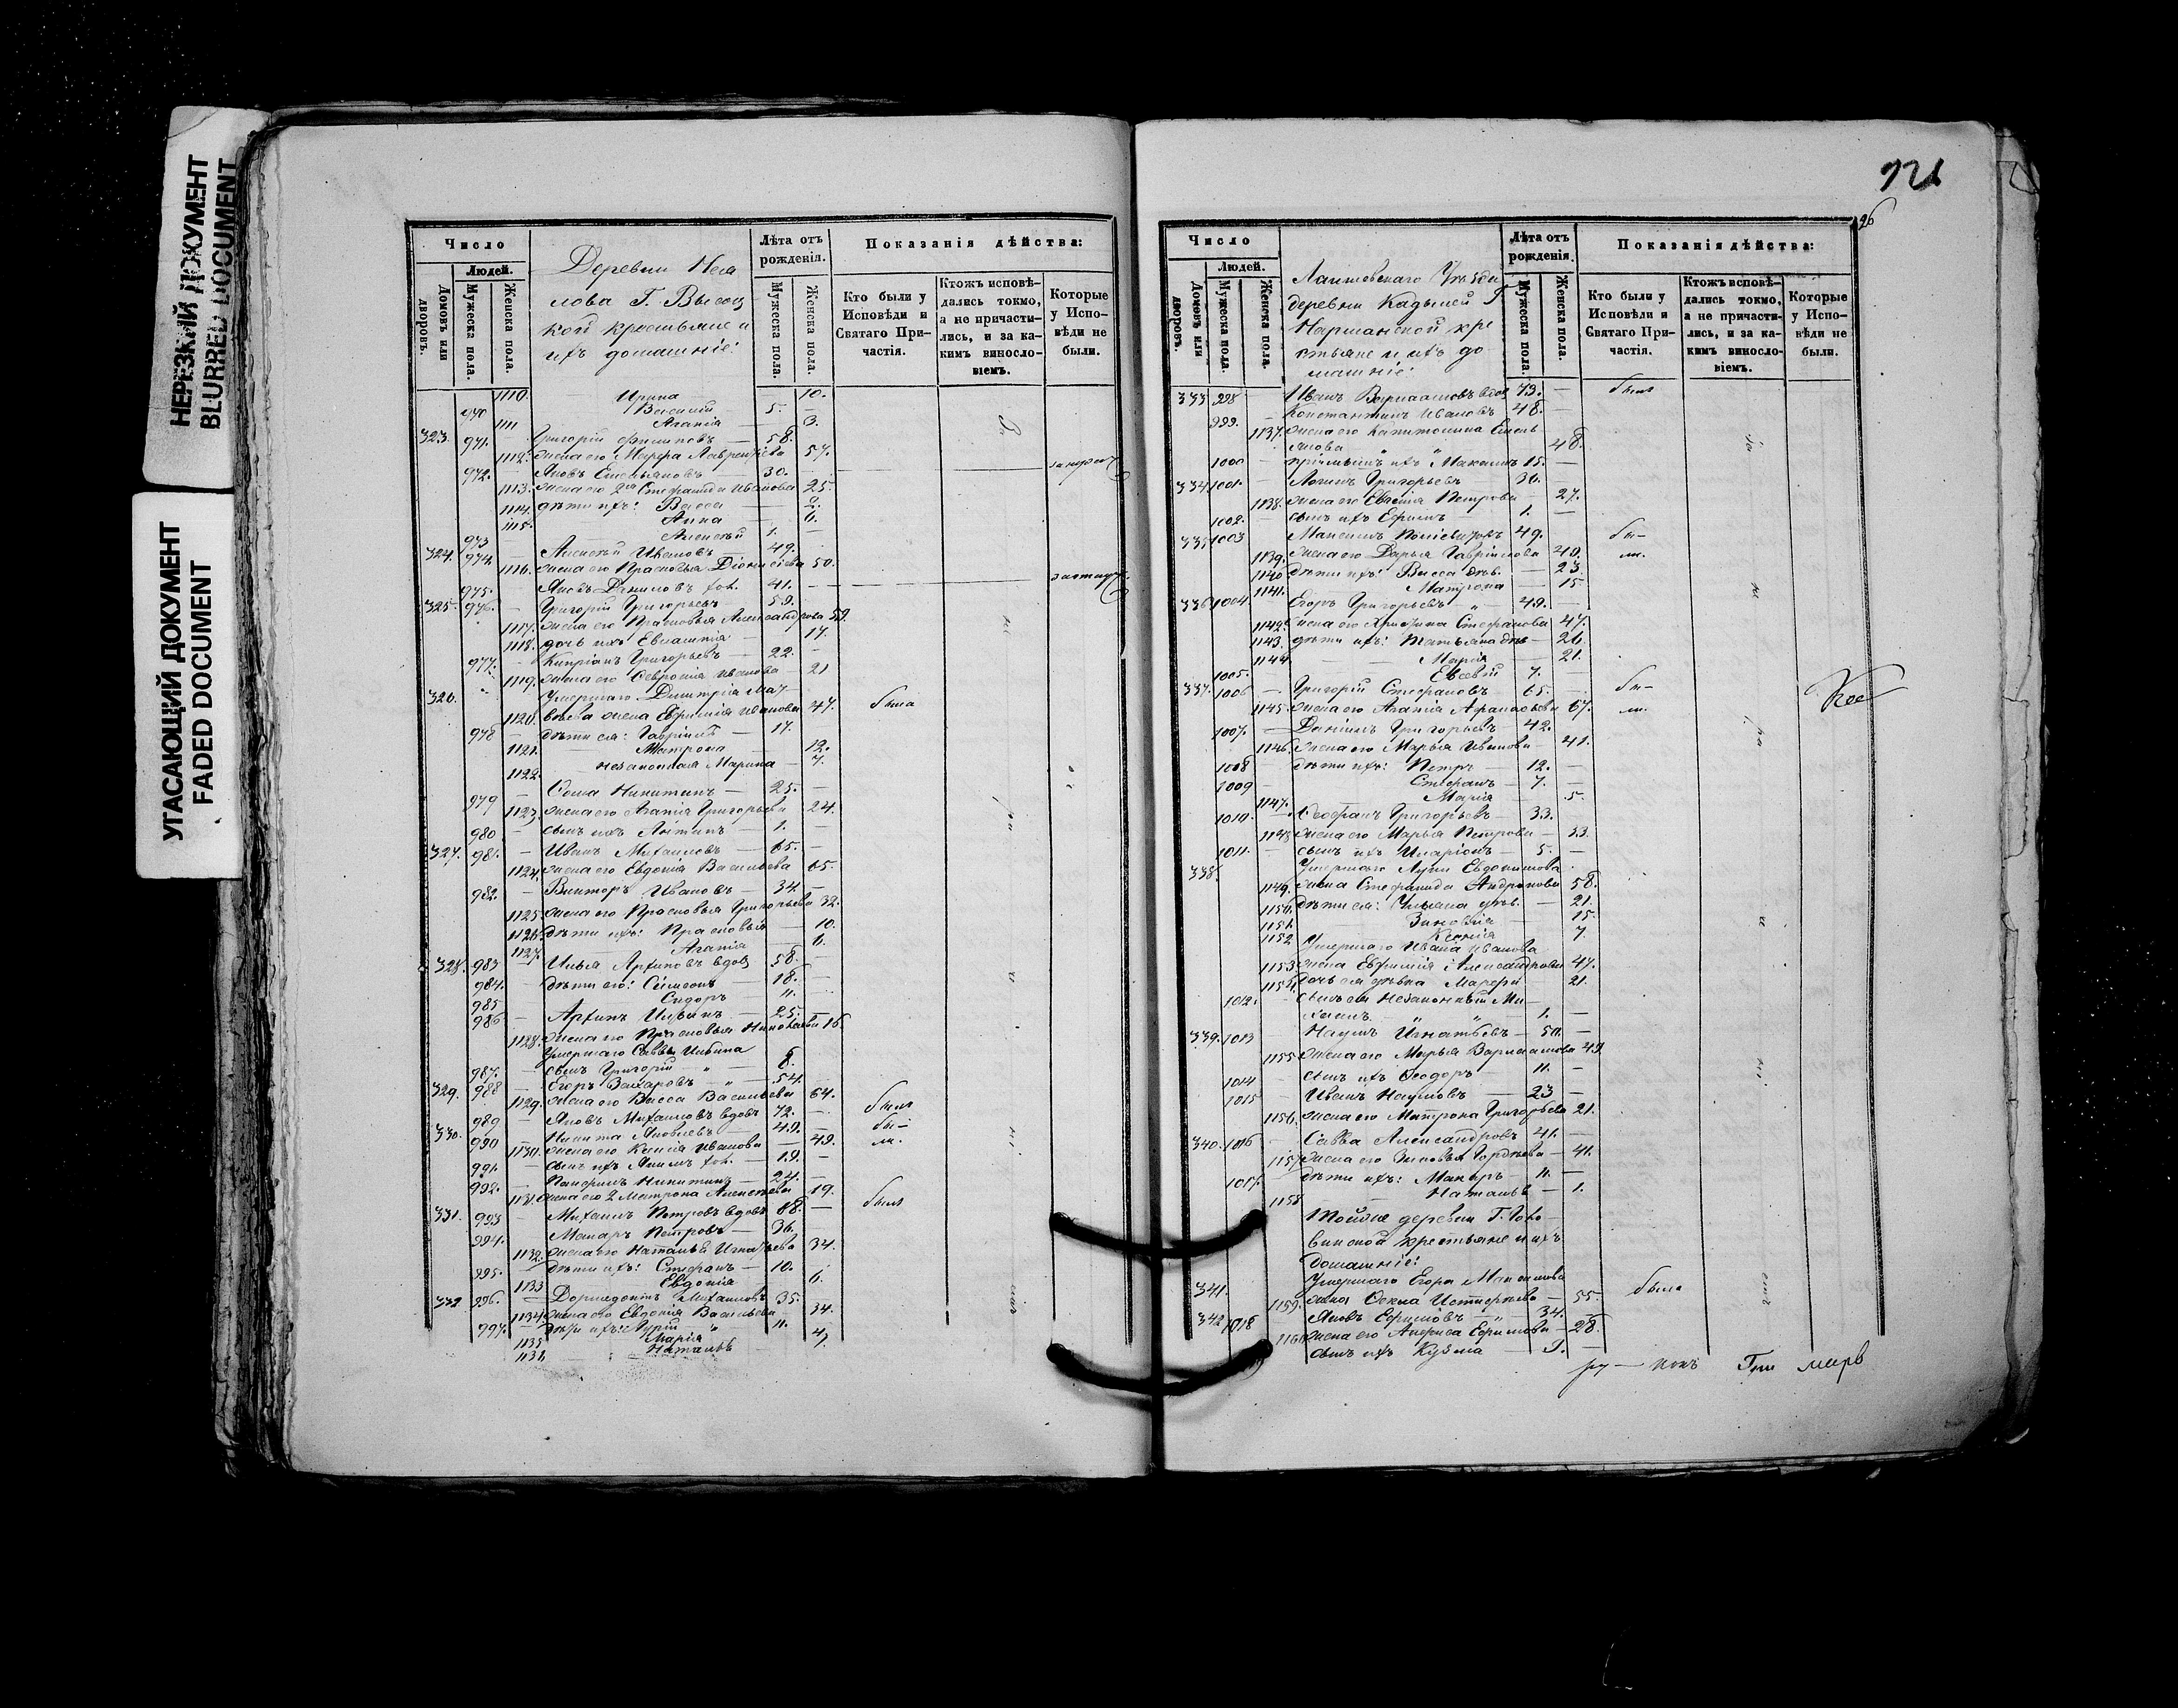 НЕРЕЗКИЙ ДОКУМЕНТ
BLURRED DOCUMENT
УГАСАЮЩИЙ ДОКУМЕНТ
FADED DOCUMENT
Число
Людей.
Домовъ или дворовъ.
Мужеска пола.
Женска пола.
Деревни
Г. Высоц
кой крестьяне и
ихъ домашніе:
Лѣта отъ рожденія.
Мужеска пола.
Женска пола.
Показанія дѣйства:
Кто были у Исповѣди и Святаго Причастія.
Ктожъ исповѣдались токмо, а не причастились, и за какимъ винословіемъ.
Которые у Исповѣди не были.
1110. Ирина — 10.
970 Василій 5. —
1111 Агапія — 3.
323. 971. Григорій Филиповъ — 58.
1112. жена его Марфа Лаврентьева 57.
972. Яковъ Емельяновъ 30. —
1113. жена его 2я Степанида Иванова 25.
1114. дѣти ихъ: Васса
1115. Анна — 6.
973 Алексѣй 1. —
324. 974. Алексѣй Ивановъ — 49.
1116. жена его Прасковья Діонисіева 50.
975. Яковъ Даниловъ 41. —
325. 976. — Григорій Григорьевъ 59.
1117. жена его Прасковья Александрова 59.
1118. дочь ихъ Евлампія — 17.
977. Кипріанъ Григорьевъ — 22. —
1119. жена его Февронія Иванова 21
326. Умершаго Димитрія Мат
1120. вѣева жена Евфимія Иванова 47. была
978 — дѣти ея: Гавріилъ — 17.
1121. Матрона — 12.
1122. незаконная Марина — 7.
979 — Фома Никитинъ — 25. —
1123. жена его Агапія Григорьева 24.
980 — сынъ ихъ Антипъ — 1. —
327. 981. — Иванъ Михаиловъ — 65. —
1124. жена его Евдокія Васильева 65.
982. — Викторъ Ивановъ — 34. —
1125. жена его Прасковья Григорьева 32.
1126. дѣти ихъ: Прасковья — 10.
1127. Агапія 6.
328. 983 — Илья Архиповъ вдов 58. —
984. — дѣти его: Симеонъ — 18. —
985 Сидоръ 11. —
986 — Архипъ Ильинъ — 25. —
1128. жена его Прасковья Николаева 16.
Умершаго Саввы Ильина
987. — сынъ Григорій — 8.
329. 988 — Егоръ Захаровъ — 54.
1129. жена его Васса Васильева 64.
989 — Яковъ Михаиловъ вдовъ 72. — былъ
330. 990 Никита Яковлевъ — 49. — бы-
1130. жена его Ксенія Иванова — 49. ли.
991. — сынъ ихъ Акимъ 19. —
992. — Панфилъ Никитинъ — 24. —
1131. жена его 2 Матрона Алексѣева 19.
331. 993 — Михаилъ Петровъ вдовъ 68. — былъ
994. Макаръ Петровъ — 36.
1132. жена его Наталья Игнатьева 34.
995. — дѣти ихъ: Стефанъ — 10.
1133 Евдокія 6.
332 996. — Дормедонтъ Михаиловъ 35. —
1134. жена его Евдокія Васильева — 34.
997. — дѣти ихъ: Гурій — 11.
1135 Марія 4.
1136. Наталья
26
Число
Людей.
Домовъ или дворовъ.
Мужеска пола.
Женска пола.
Лаишевскаго Уѣзда
деревни Кадышей Г.
Нарманской кре
стьяне и ихъ до
машніе:
Лѣта отъ рожденія.
Мужеска пола.
Женска пола.
Показанія дѣйства:
Кто были у Исповѣди и Святаго Причастія.
Ктожъ исповѣдались токмо, а не причастились, и за какимъ винословіемъ.
Которые у Исповѣди не были.
333 998 Иванъ Варлаамовъ вдов 73. — былъ
999. Константинъ Ивановъ 48. —
1137. жена его Капитолина Емель
янова 48.
1000 пріимышъ ихъ Максимъ 15. —
334. 1001. — Логинъ Григорьевъ 36.
1138. жена его Евгенія Петрова — 27.
1002. — сынъ ихъ Ефимъ — 1. —
335 1003 Максимъ 49. бы-
1139. жена его Дарья Гавріилова 49. ли.
1140 дѣти ихъ: Васса дѣв. — 23.
1141. Матрона — 15
336 1004 Егоръ Григорьевъ 49. —
1142. жена его Христина Стефанова 47.
1143. дѣти ихъ: Татьяна дѣв — 26.
1144 Марія 21.
1005. Евсевій 7. —
337. 1006 — Григорій Стефановъ 65. — бы-
1145. жена его Агапія Афанасьева 67. ли.
1007. — Даніилъ Григорьевъ 42.
1146. жена его Марья Иванова 41.
1008 — дѣти ихъ: Петръ — 12. —
1009 — Стефанъ — 7. —
1147. Марія 5.
1010. — Феофанъ Григорьевъ — 33.
1148 жена его Марья Петрова — 33
1011. — сынъ ихъ Иларіонъ — 5. —
338. Умершаго Луки Евдокимова
1149. жена Степанида Андреянова 58.
1150. дѣти ея: Ульяна дѣв. — 21.
1151. Зиновія 15.
1152 Ксенія 7.
Умершаго Ивана Иванова
1153 жена Евфимія Александрова 47.
1154. дочь ея дѣвка Марфа 21.
1012. — сынъ ея незаконный Ми-
хаилъ 1. —
339. 1013 Наумъ Игнатьевъ — 50. —
1155 жена его Марья Варлаамова 49.
1014 сынъ ихъ Феодоръ 11. —
1015 — Иванъ Наумовъ — 23 —
1156. жена его Матрона Григорьева 21.
340. 1016 — Савва Александровъ 41. —
1157 жена его Зиновья Гордѣева — 41.
1017. — дѣти ихъ: Макаръ 11. —
1158 Наталья — 1.
Тойже деревни Г. Голо-
винской крестьяне и ихъ
домашніе:
341. Умершаго Егора Максимова
1159. жена Фекла 55. была
342 1018 Яковъ Ефимовъ — 34. —
1160 жена его Анфиса Ефимова — 28.
сынъ ихъ Кузма —